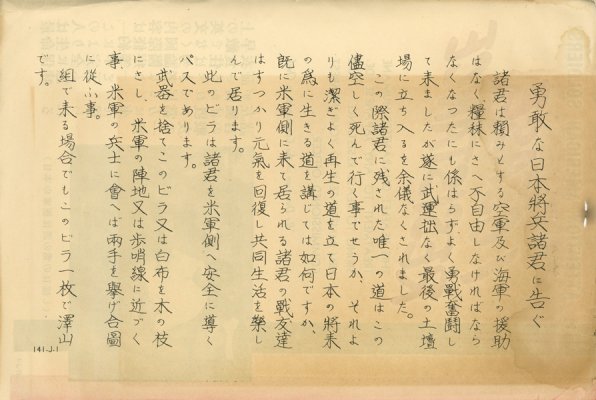 勇敢な日本將兵諸君に告ぐ
諸君は頼みとする空軍及び海軍の援助
はなく糧秣にさへ不自由しなければなら
なくなつたにも係はらずよく勇戰奮闘し
て来ましたが遂に武運拙なく最後の土壇
場に立ち入るを余儀なくされました。
この際諸君に残された唯一の道はこの
儘空しく死んで行く事でせうか、それよ
りも潔ぎよく再生の道を立て日本の將来
の為に生きる道を講じては如何ですか、
既に米軍側に来て居られる諸君の戰友達
はすつかり元氣を回復し共同生活を樂し
んで居ります。
此のビラは諸君を米軍側へ安全に導く
パスであります。
武器を捨てこのビラ又は白布を木の枝
にさし、米軍の陣地又は歩哨線に近づく
事、米軍の兵士に會へば兩手を擧げ合圖
に從ふ事。
組で来る場合でもこのビラ一枚で澤山
です。
141-J-1